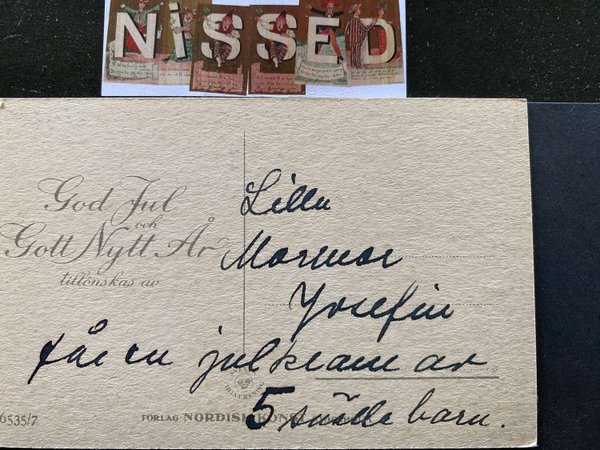 NISSED
God Jul
och
Gott Nytt År
tillönskas av
Lilla
Mormor
Josefin
får en julkram av
5 snälla barn.
6535/7
FÖRLAG NORDISK KONST